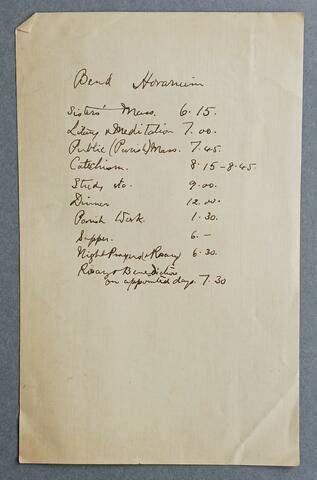 Bend Horarium
Sisters' Mass. 6.15.
Litany & Meditation 7.00.
Public (Parish) Mass. 7.45.
Catechism. 8.15-8.45.
Study etc. 9.00.
Dinner 12.00.
Parish Work. 1.30.
Supper. 6.-
Night Prayers (& Rosary) 6.30
Rosary & Benediction
on appointed days. 7.30